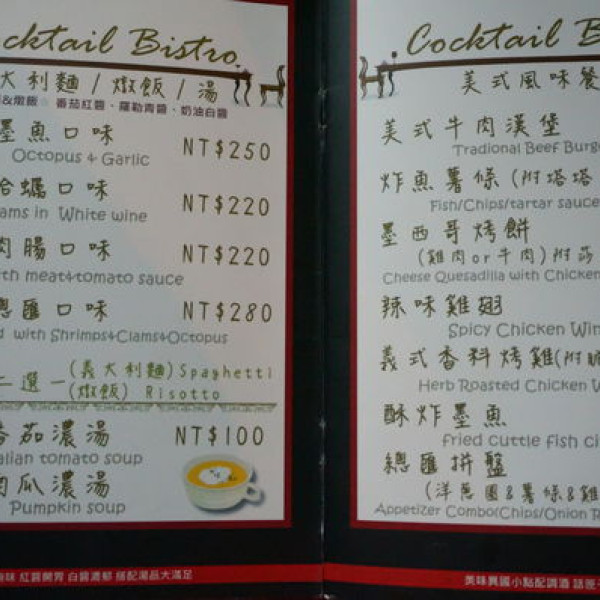 cktail Bistro
大利麵 / 燉飯 / 湯
&燉飯 番茄紅醬、羅勒青醬、奶油白醬
墨魚口味 NT$250
Octopus & Garlic
蛤蠣口味 NT$220
ams in White wine
肉腸口味 NT$220
ith meat&tomato sauce
總匯口味 NT$280
d with Shrimps&Clams&Octopus
二選一 (義大利麵) Spaghetti
(燉飯) Risotto
番茄濃湯 NT$100
alian tomato soup
南瓜濃湯
Pumpkin soup
味 紅醬開胃 白醬濃郁 搭配湯品大滿足
Cocktail B
美式風味餐
美式牛肉漢堡
Tradional Beef Burge
炸魚薯條 (附塔塔
Fish/Chips/tartar sauce
墨西哥烤餅
(雞肉or牛肉) 附莎
Cheese Quesadilla with Chicken
辣味雞翅
Spicy Chicken Win
義式香料烤雞 (附
Herb Roasted Chicken W
酥炸墨魚
fried cuttle fish ci
總匯拼盤
(洋蔥圈&薯條&雞
Appetizer Combo(Chips/Onion R
美味異國小點配調酒